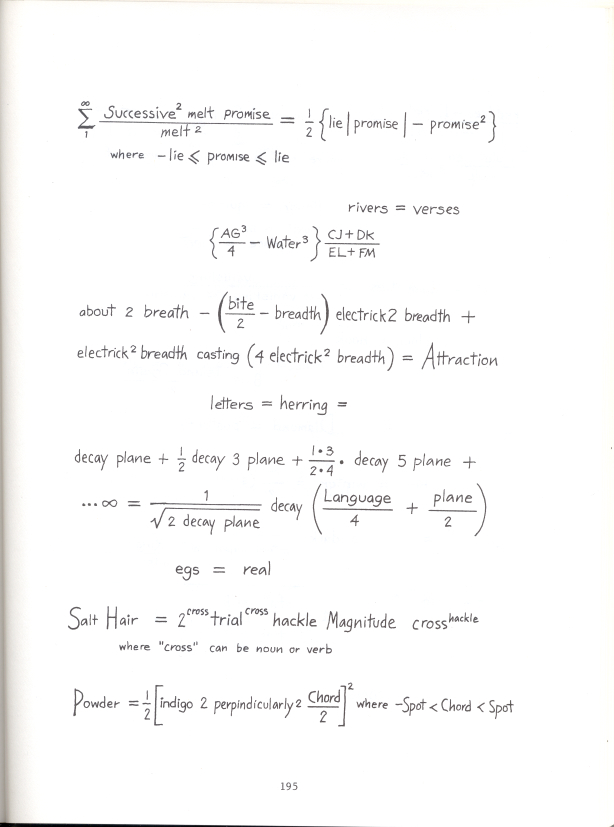 ∞
∑ Successive² melt promise / melt ² = 1/2 {lie | promise | − promise²}
1
where −lie ⩽ promise ⩽ lie
rivers = verses
{AG³/4 − Water³} CJ+DK / EL+FM
about 2 breath − (bite/2 − breadth) electrick2 breadth +
electrick² breadth casting (4 electrick² breadth) = Attraction
letters = herring =
decay plane + 1/2 decay 3 plane + 1•3/2•4 • decay 5 plane +
...∞ = 1/√2 decay plane decay (Language/4 + plane/2)
egs = real
Salt Hair = 2^cross trial^cross hackle Magnitude cross^hackle
where "cross" can be noun or verb
Powder = 1/2 [indigo 2 perpindicularly 2 Chord/2]² where −Spot < Chord < Spot
195